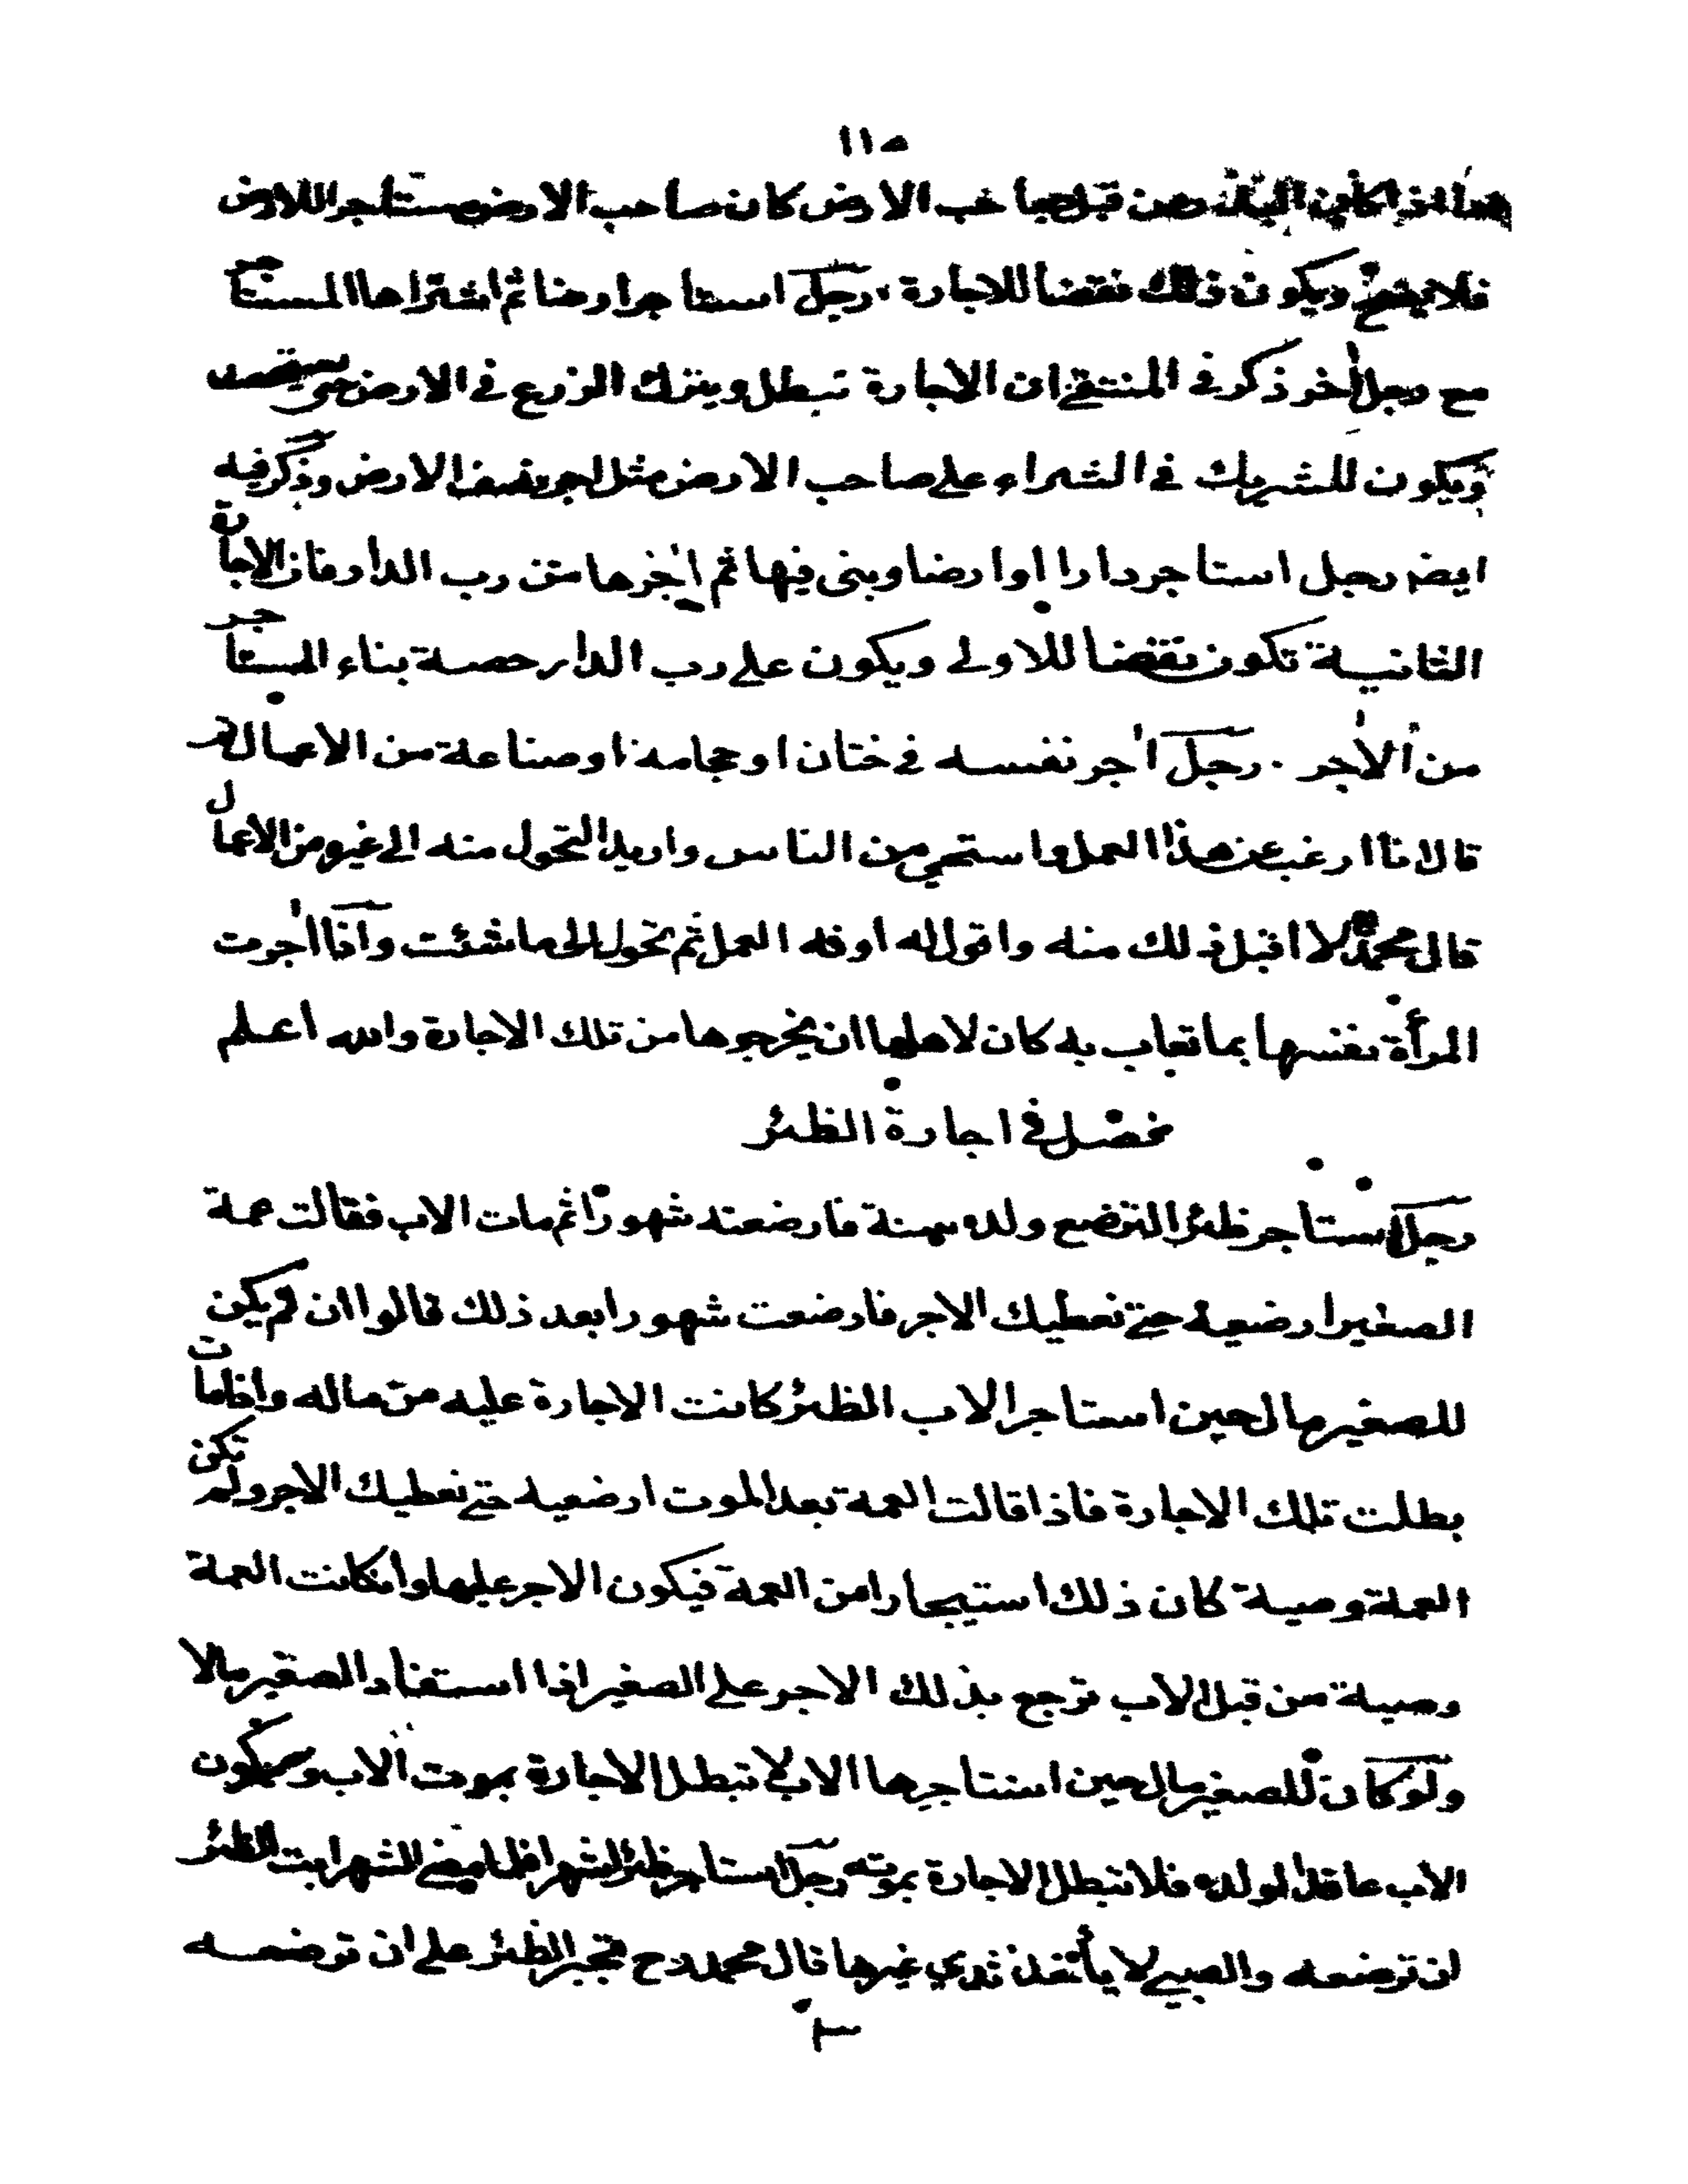 ١١٥
هذا اذا كان البذر من قبل صاحب الارض كان صاحب الارض مستاجرا للارض
فلا يصح ويكون ذلك نقضا للاجارة . رجل استاجر ارضا ثم اشتراها المستاجر
مع رجل اخر ذكر في المنتقى ان الاجارة تبطل ويترك الزرع في الارض حتى يستحصد
ويكون للشريك في الشراء على صاحب الارض مثل اجر نصف الارض وذكر فيه
ايضا رجل استاجر دارا او ارضا وبنى فيها ثم اٰجرها من رب الدار فان الاجارة
الثانية تكون نقضا للاولى ويكون على رب الدار حصة بناء المستاجر
من الاجر . رجل اٰجر نفسه في ختان او حجامة او صناعة من الاعمال ثم
قال انا ارغب عن هذا العمل واستحيي من الناس واريد التحول منه الى غيره من الاعمال
قال محمد لا اقبل ذلك منه واقول له اوفه العمل ثم تحول الى ما شئت واذا اٰجرت
المرأة نفسها بما تعاب به كان لاهلها ان يخرجوها من تلك الاجارة والله اعلم
فصل في اجارة الظئر
رجل استاجر ظئرا لترضع ولده سنة فارضعته شهورا ثم مات الاب فقالت عمة
الصغير ارضعيه حتى نعطيك الاجر فارضعت شهورا بعد ذلك قالوا ان لم يكن
للصغير مال حين استاجر الاب الظئر كانت الاجارة عليه من ماله واذا مات
بطلت تلك الاجارة فاذا قالت العمة بعد الموت ارضعيه حتى نعطيك الاجر ولم تكن
العمة وصية كان ذلك استيجارا من العمة فيكون الاجر عليها وان كانت العمة
وصية من قبل الاب ترجع بذلك الاجر على الصغير اذا استفاد الصغير مالا
ولو كان للصغير مال حين استاجرها الاب لا تبطل الاجارة بموت الاب ويكون
الاب عاقدا لولده فلا تبطل الاجارة بموته رجل استاجر ظئرا شهرا فلما مضى الشهر ابت الظئر
ان ترضعه والصبي لا يأخذ ثدي غيرها قال محمد رح تجبر الظئر على ان ترضعه